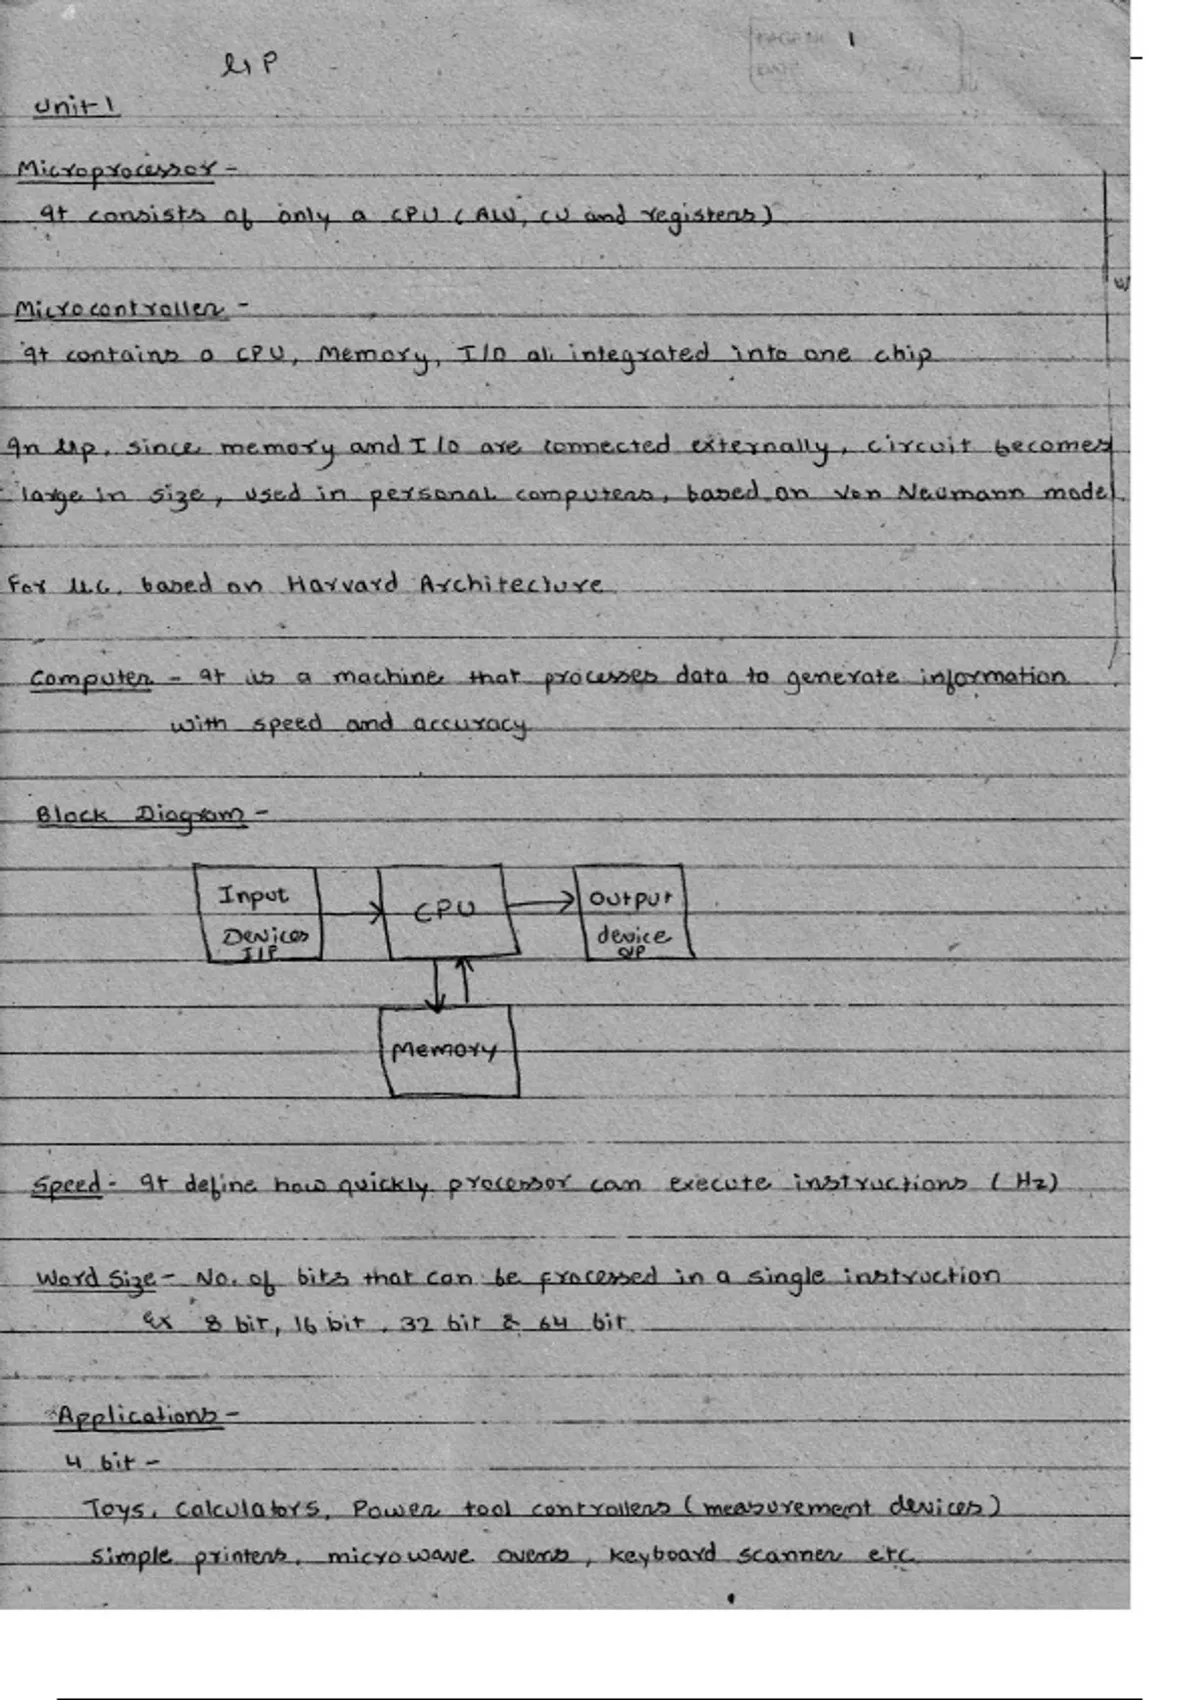 μP
1
Unit-1
Microprocessor -
It consists of only a CPU (ALU, CU and registers)
Microcontroller -
It contains a CPU, Memory, I/O all integrated into one chip
In μp, since memory and I/O are connected externally, circuit becomes
large in size, used in personal computers, based on Von Neumann model.
For μc, based on Harvard Architecture
Computer - It is a machine that processes data to generate information
with speed and accuracy
Block Diagram -
Input CPU Output
Devices device
I/P O/P
Memory
Speed - It define how quickly processor can execute instructions (Hz)
Word Size - No. of bits that can be processed in a single instruction
Ex 8 bit, 16 bit, 32 bit & 64 bit
Applications -
4 bit -
Toys, Calculators, Power tool controllers (measurement devices)
simple printers, microwave ovens, keyboard scanner etc